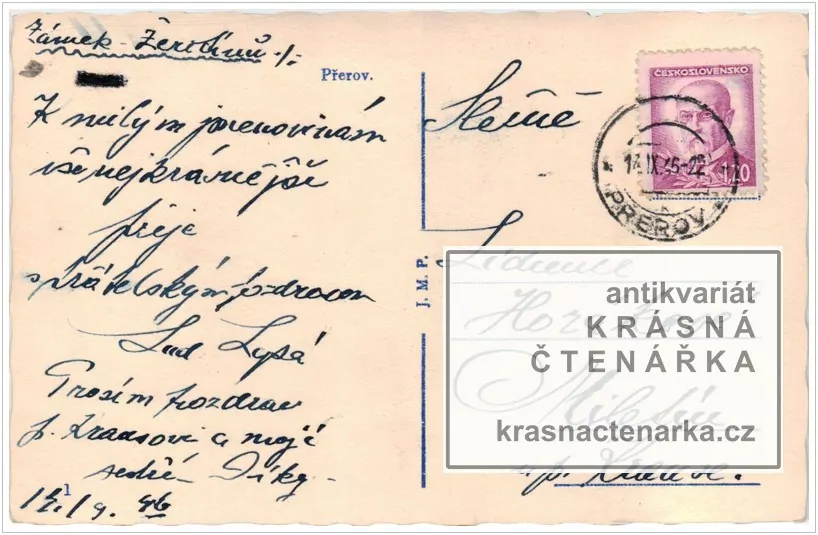 Zámek Žerotínů
Přerov.
K milým jmeninám
vše nejkrásnější
přeje
s přátelským pozdravem
Lud Lysá
Prosím pozdrav
p. a moje
Díky
14/9. 46
J. M. P.
Slečně
ČESKOSLOVENSKO
1,20
14.IX.46-22
PŘEROV
antikvariát
KRÁSNÁ
ČTENÁŘKA
krasnactenarka.cz
Miletín